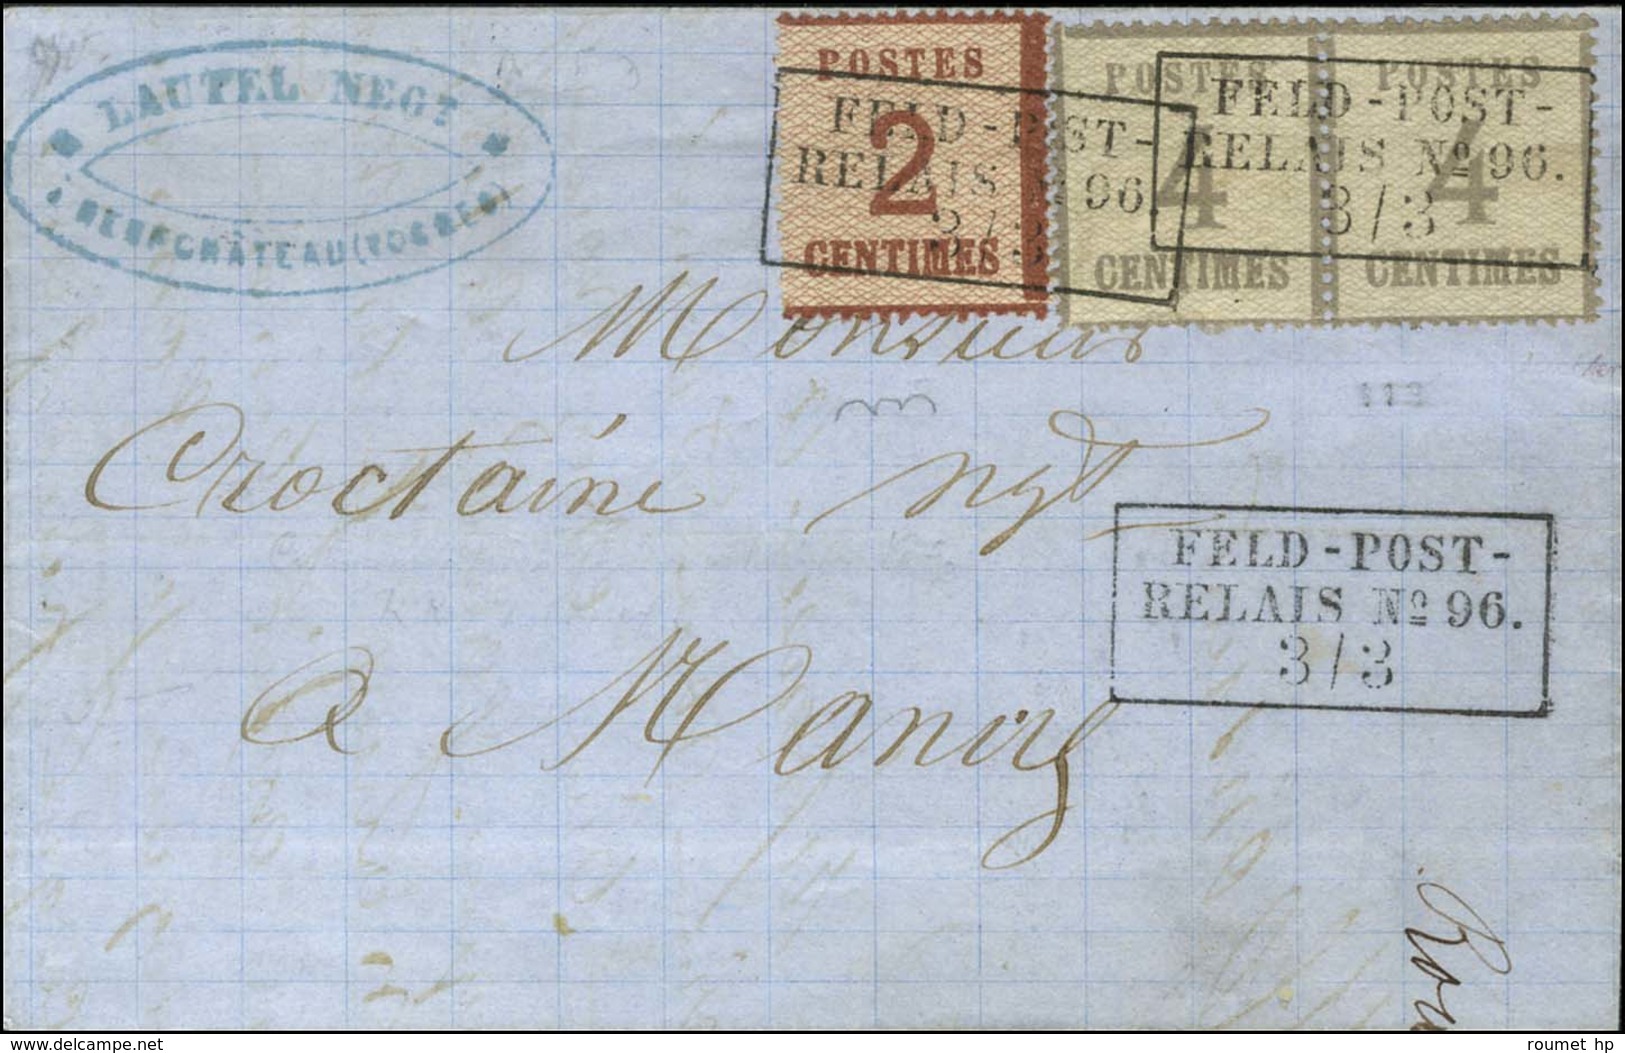 LAUTEL NEGT
A NEUFCHÂTEAU (VOSGES)
POSTES
2
CENTIMES
POSTES
4
CENTIMES
POSTES
4
CENTIMES
FELD-POST-
RELAIS No 96.
3/3
FELD-POST-
RELAIS No 96.
3/3
Monsieur
113
Croctaine ngt
FELD-POST-
RELAIS No 96.
3/3
a Nancy
delcampe.net
roumet hp